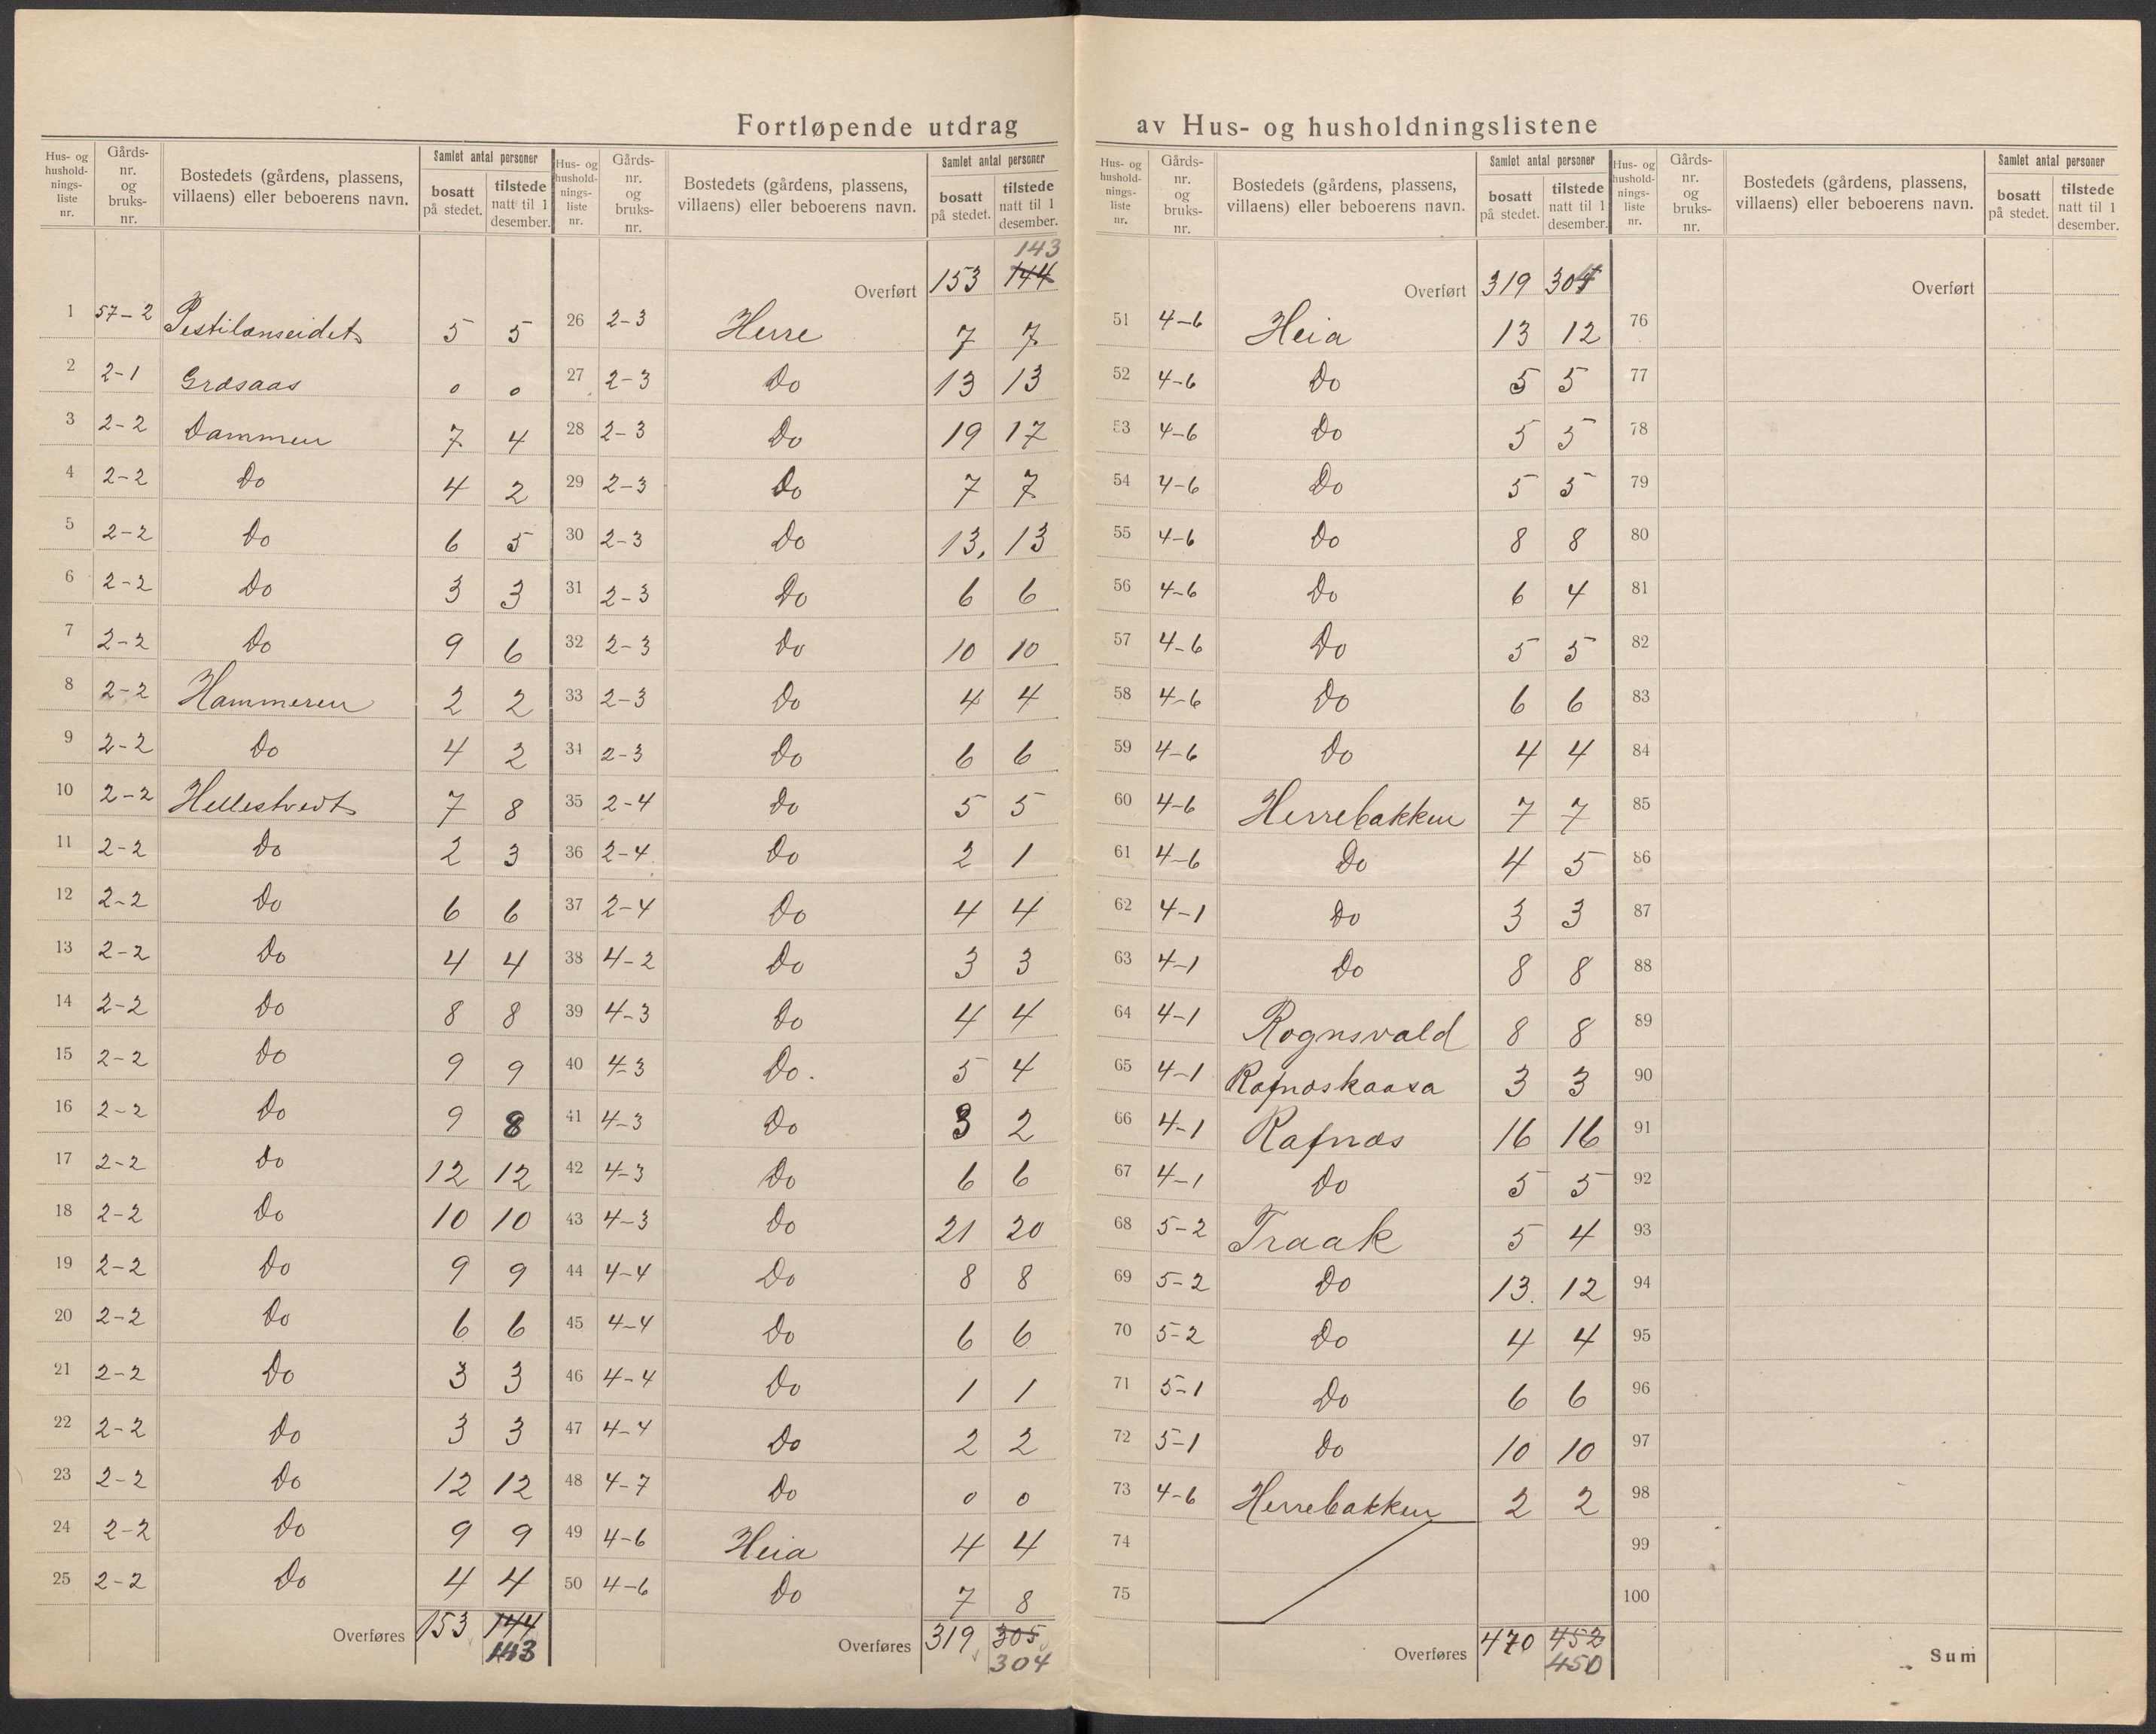 Fortløpende utdrag av Hus- og husholdningslistene
Hus- og hushold-nings-liste nr. | Gårds-nr. og bruks-nr. | Bostedets (gårdens, plassens, villaens) eller beboerens navn. | Samlet antal personer | bosatt på stedet. | tilstede natt til 1 desember.
1 57-2 Pestilænseidet 5 5
2 2-1 Gräsaas 0 0
3 2-2 Dammen 7 4
4 2-2 Do 4 2
5 2-2 Do 6 5
6 2-2 Do 3 3
7 2-2 Do 9 6
8 2-2 Hammeren 2 2
9 2-2 Do 4 2
10 2-2 Hellestvedt 7 8
11 2-2 Do 2 3
12 2-2 Do 6 6
13 2-2 Do 4 4
14 2-2 Do 8 8
15 2-2 Do 9 9
16 2-2 Do 9 8
17 2-2 Do 12 12
18 2-2 Do 10 10
19 2-2 Do 9 9
20 2-2 Do 6 6
21 2-2 Do 3 3
22 2-2 Do 3 3
23 2-2 Do 12 12
24 2-2 Do 9 9
25 2-2 Do 4 4
Overføres 153 144
143
Hus- og hushold-nings-liste nr. | Gårds-nr. og bruks-nr. | Bostedets (gårdens, plassens, villaens) eller beboerens navn. | Samlet antal personer | bosatt på stedet. | tilstede natt til 1 desember.
143
Overført 153 144
26 2-3 Herre 7 7
27 2-3 Do 13 13
28 2-3 Do 19 17
29 2-3 Do 7 7
30 2-3 Do 13, 13
31 2-3 Do 6 6
32 2-3 Do 10 10
33 2-3 Do 4 4
34 2-3 Do 6 6
35 2-4 Do 5 5
36 2-4 Do 2 1
37 2-4 Do 4 4
38 4-2 Do 3 3
39 4-3 Do 4 4
40 4-3 Do. 5 4
41 4-3 Do 3 2
42 4-3 Do 6 6
43 4-3 Do 21 20
44 4-4 Do 8 8
45 4-4 Do 6 6
46 4-4 Do 1 1
47 4-4 Do 2 2
48 4-7 Do 0 0
49 4-6 Heia 4 4
50 4-6 Do 7 8
Overføres 319 305
304
Hus- og hushold-nings-liste nr. | Gårds-nr. og bruks-nr. | Bostedets (gårdens, plassens, villaens) eller beboerens navn. | Samlet antal personer | bosatt på stedet. | tilstede natt til 1 desember.
Overført 319 304
51 4-6 Heia 13 12
52 4-6 Do 5 5
53 4-6 Do 5 5
54 4-6 Do 5 5
55 4-6 Do 8 8
56 4-6 Do 6 4
57 4-6 Do 5 5
58 4-6 Do 6 6
59 4-6 Do 4 4
60 4-6 Herrebakken 7 7
61 4-6 Do 4 5
62 4-1 Do 3 3
63 4-1 Do 8 8
64 4-1 Rognsvald 8 8
65 4-1 Rafnäskaasa 3 3
66 4-1 Rafnäs 16 16
67 4-1 Do 5 5
68 5-2 Traak 5 4
69 5-2 Do 13. 12
70 5-2 Do 4 4
71 5-1 Do 6 6
72 5-1 Do 10 10
73 4-6 Herrebakken 2 2
74
75
Overføres 470 452
450
Hus- og hushold-nings-liste nr. | Gårds-nr. og bruks-nr. | Bostedets (gårdens, plassens, villaens) eller beboerens navn. | Samlet antal personer | bosatt på stedet. | tilstede natt til 1 desember.
Overført
76
77
78
79
80
81
82
83
84
85
86
87
88
89
90
91
92
93
94
95
96
97
98
99
100
Sum